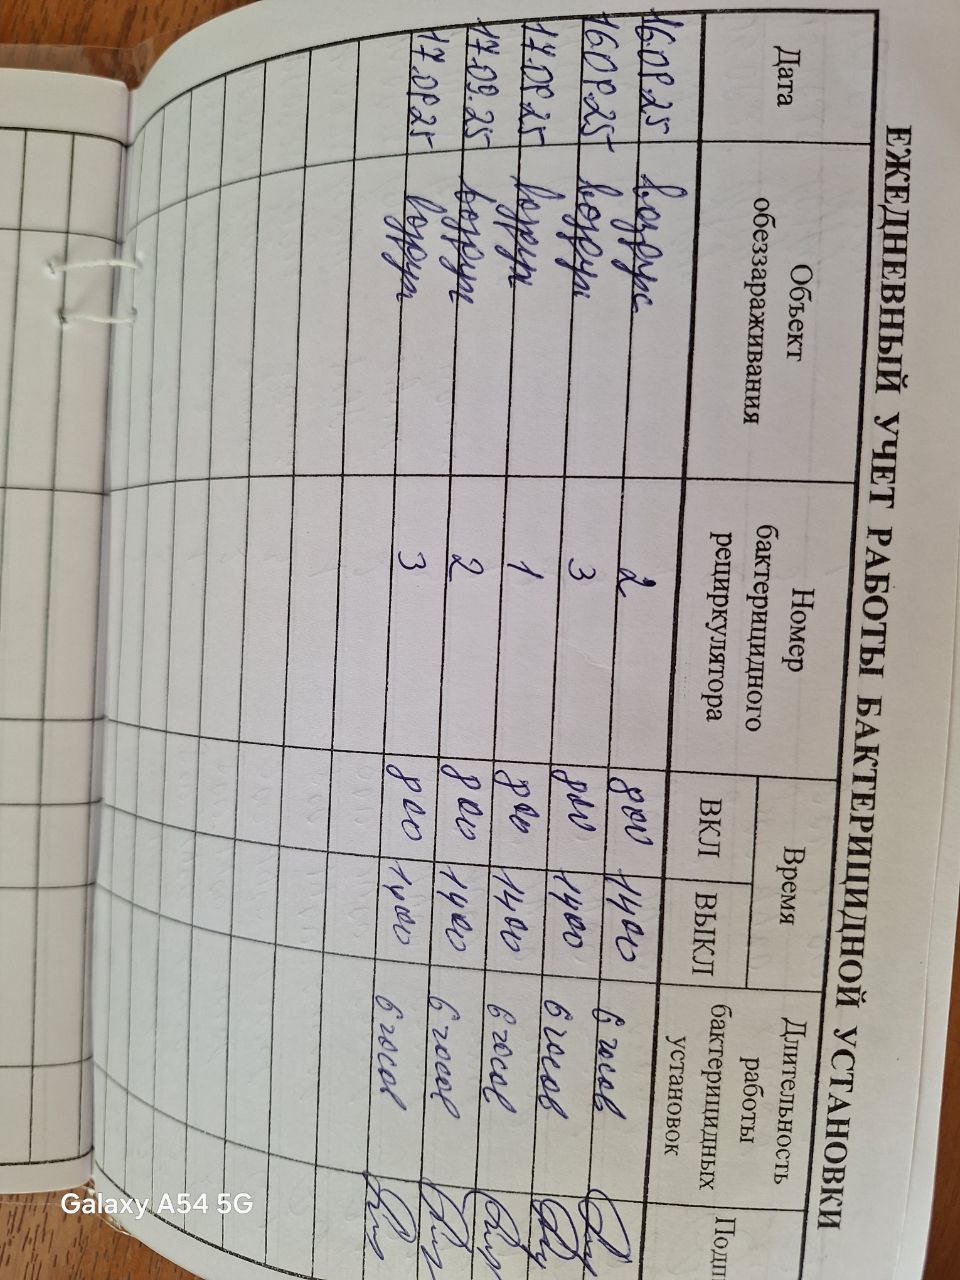 ЕЖЕДНЕВНЫЙ УЧЕТ РАБОТЫ БАКТЕРИЦИДНОЙ УСТАНОВКИ
Дата
Объект
обеззараживания
Номер
бактерицидного
рециркулятора
Время
ВКЛ
ВЫКЛ
Длительность
работы
бактерицидных
установок
Подп
16.09.25 воздух 2 800 1400 6 часов
16.09.25 воздух 3 800 1400 6 часов
17.09.25 воздух 1 800 1400 6 часов
17.09.25 воздух 2 800 1400 6 часов
17.09.25 воздух 3 800 1400 6 часов
Galaxy A54 5G